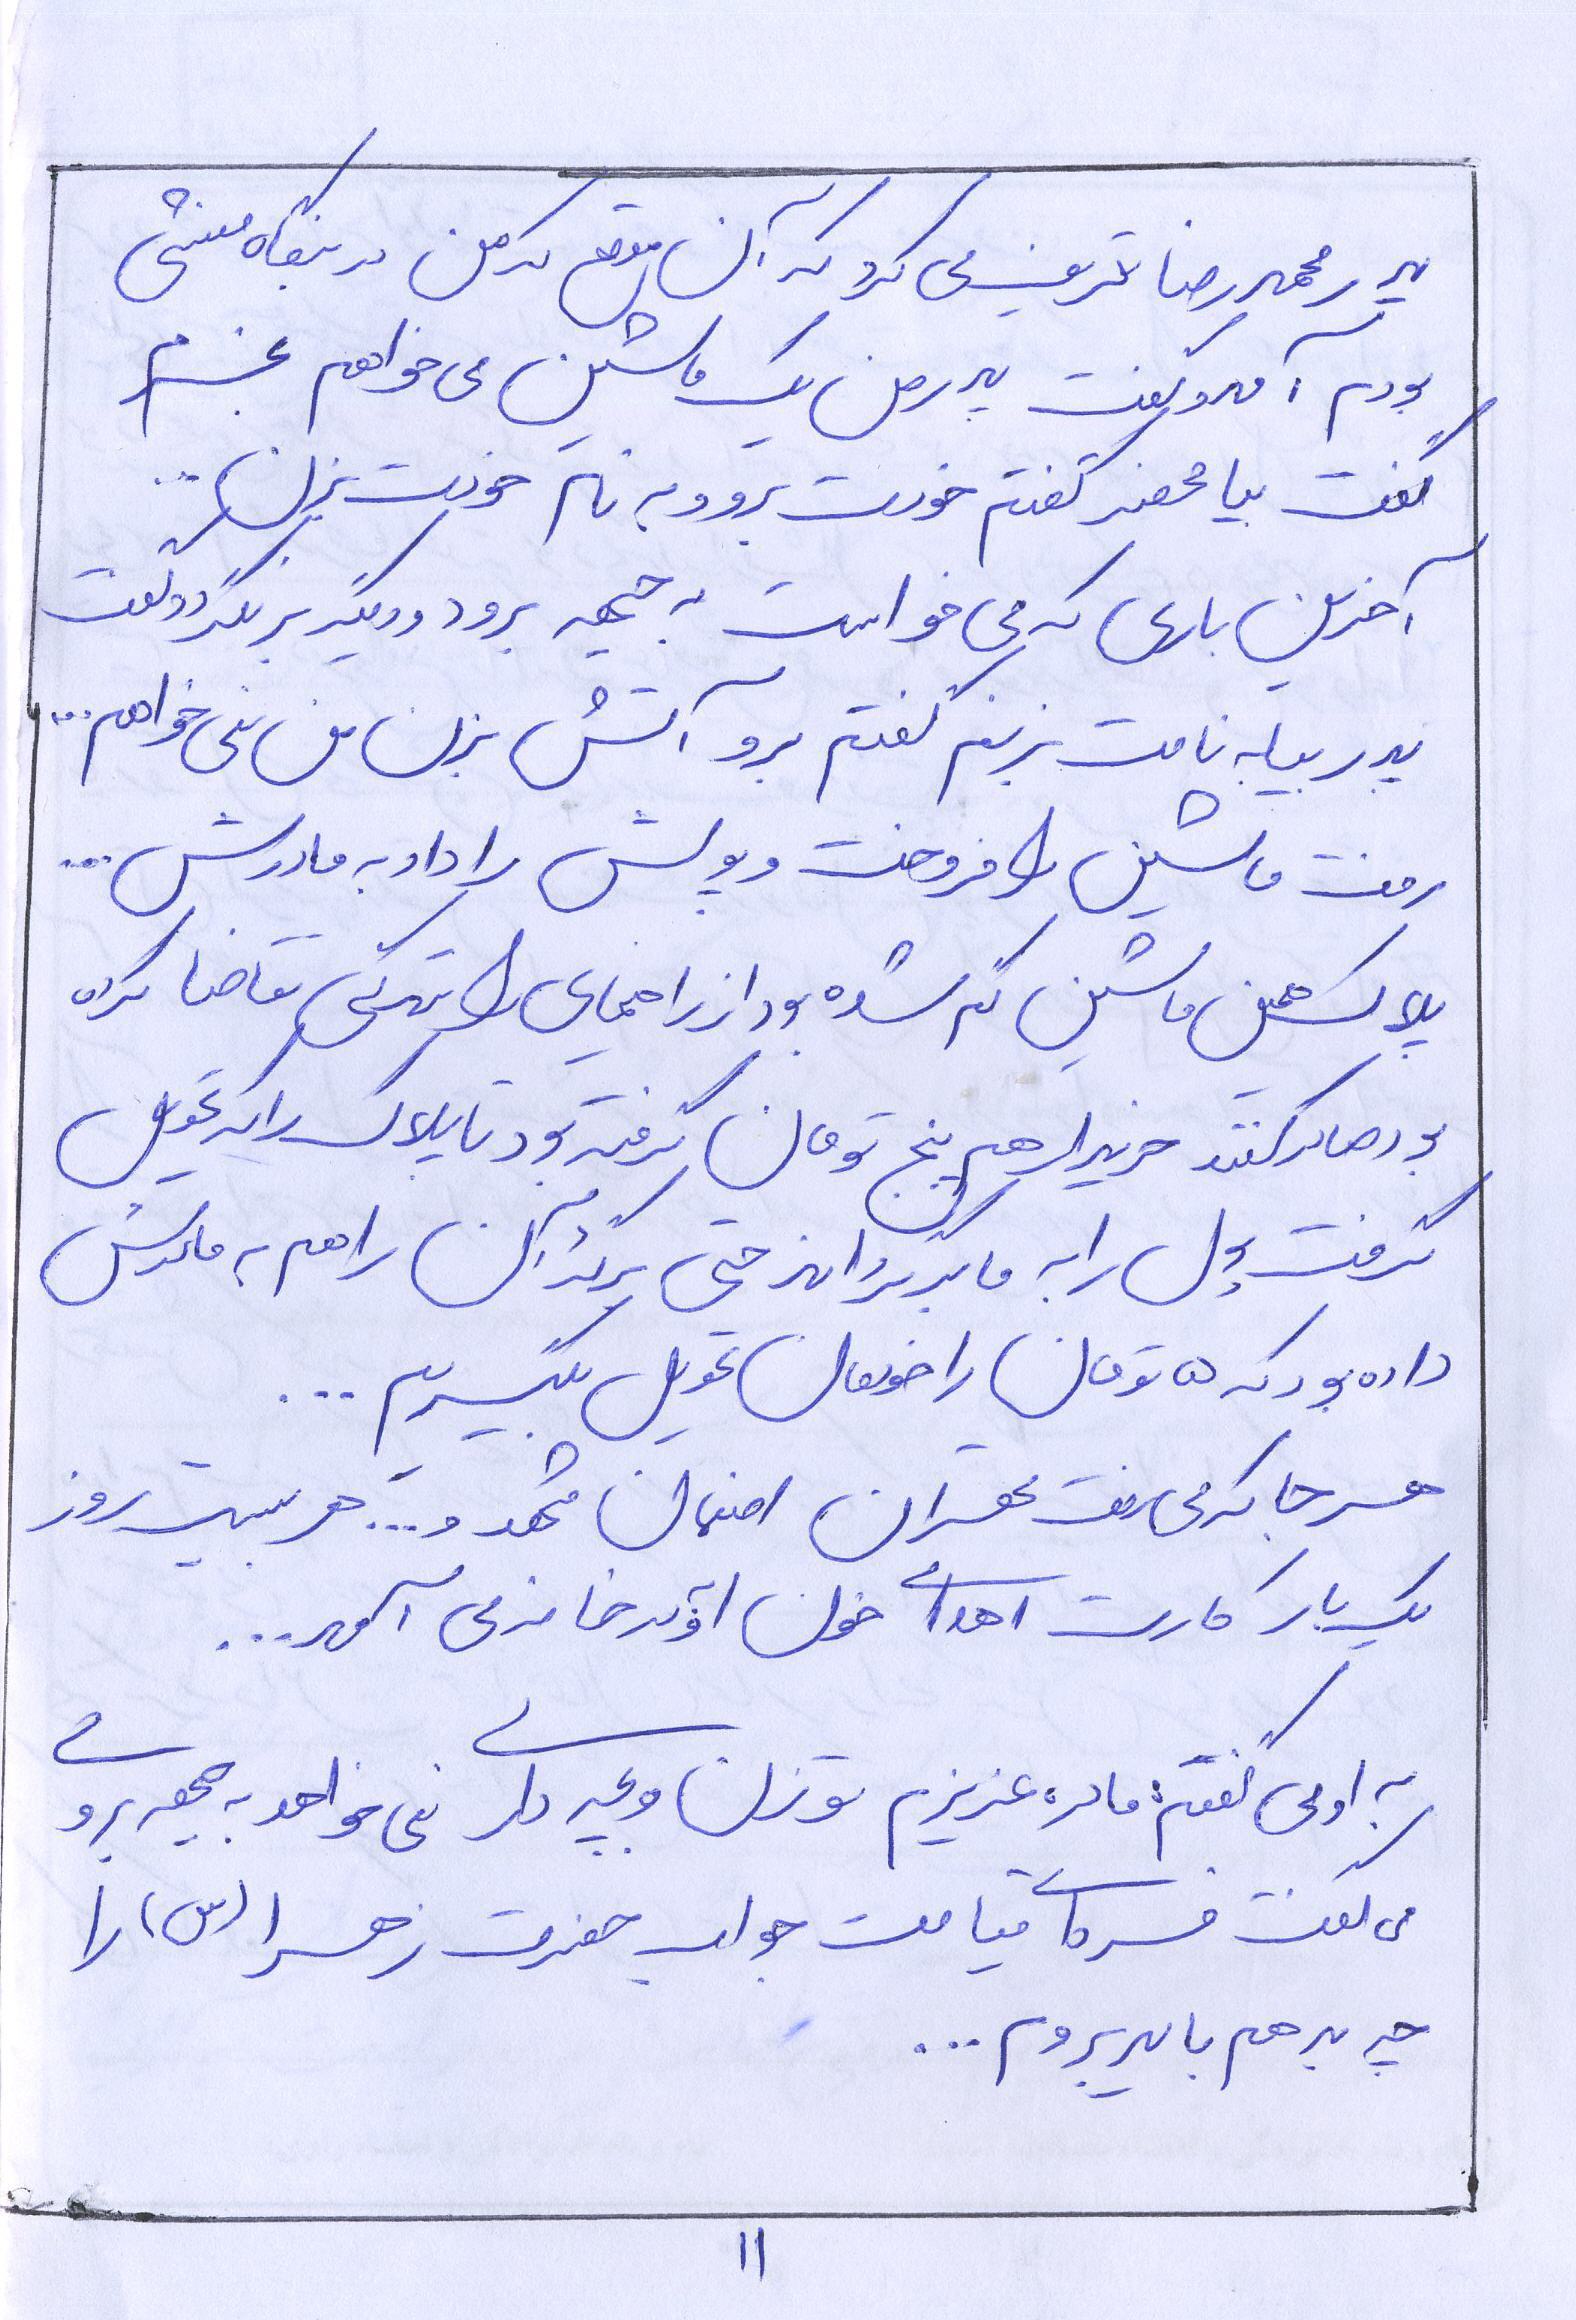 پدر محمدرضا تعریف می کرد که آن موقع که من در بنگاه منشی
بودم آمد و گفت پدر من یک ماشین می خواهم بخرم
گفت بیا محضر گفتم خودت برو و به نام خودت بزن ...
آخرین باری که می خواست به جبهه برود و دیگر برنگردد گفت
پدر بیا به نامت بزنم گفتم برو آتش بزن من نمی خواهم ...
رفت ماشین را فروخت و پولش را داد به مادرش ...
پلاک همین ماشین گم شده بود از راهنمایی رانندگی تقاضا کرده
بود صادر کنند خریدار هم پنج تومان گرفته بود تا پلاک را که تحویل
گرفت پول را به ما برگرداند حتی برگه آن را هم به مادرش
داده بود که ۵ تومان را خودمان تحویل بگیریم ...
هر جا که می رفت تهران اصفهان مشهد و ... هر بیست روز
یک بار کارت اهدای خون او در خانه می آمد ...
به او می گفتم: مادر، عزیزم تو زن و بچه داری نمی خواهد به جبهه بروی
می گفت فردای قیامت جواب حضرت زهرا (س) را
چه بدهم باید بروم ...
۱۱